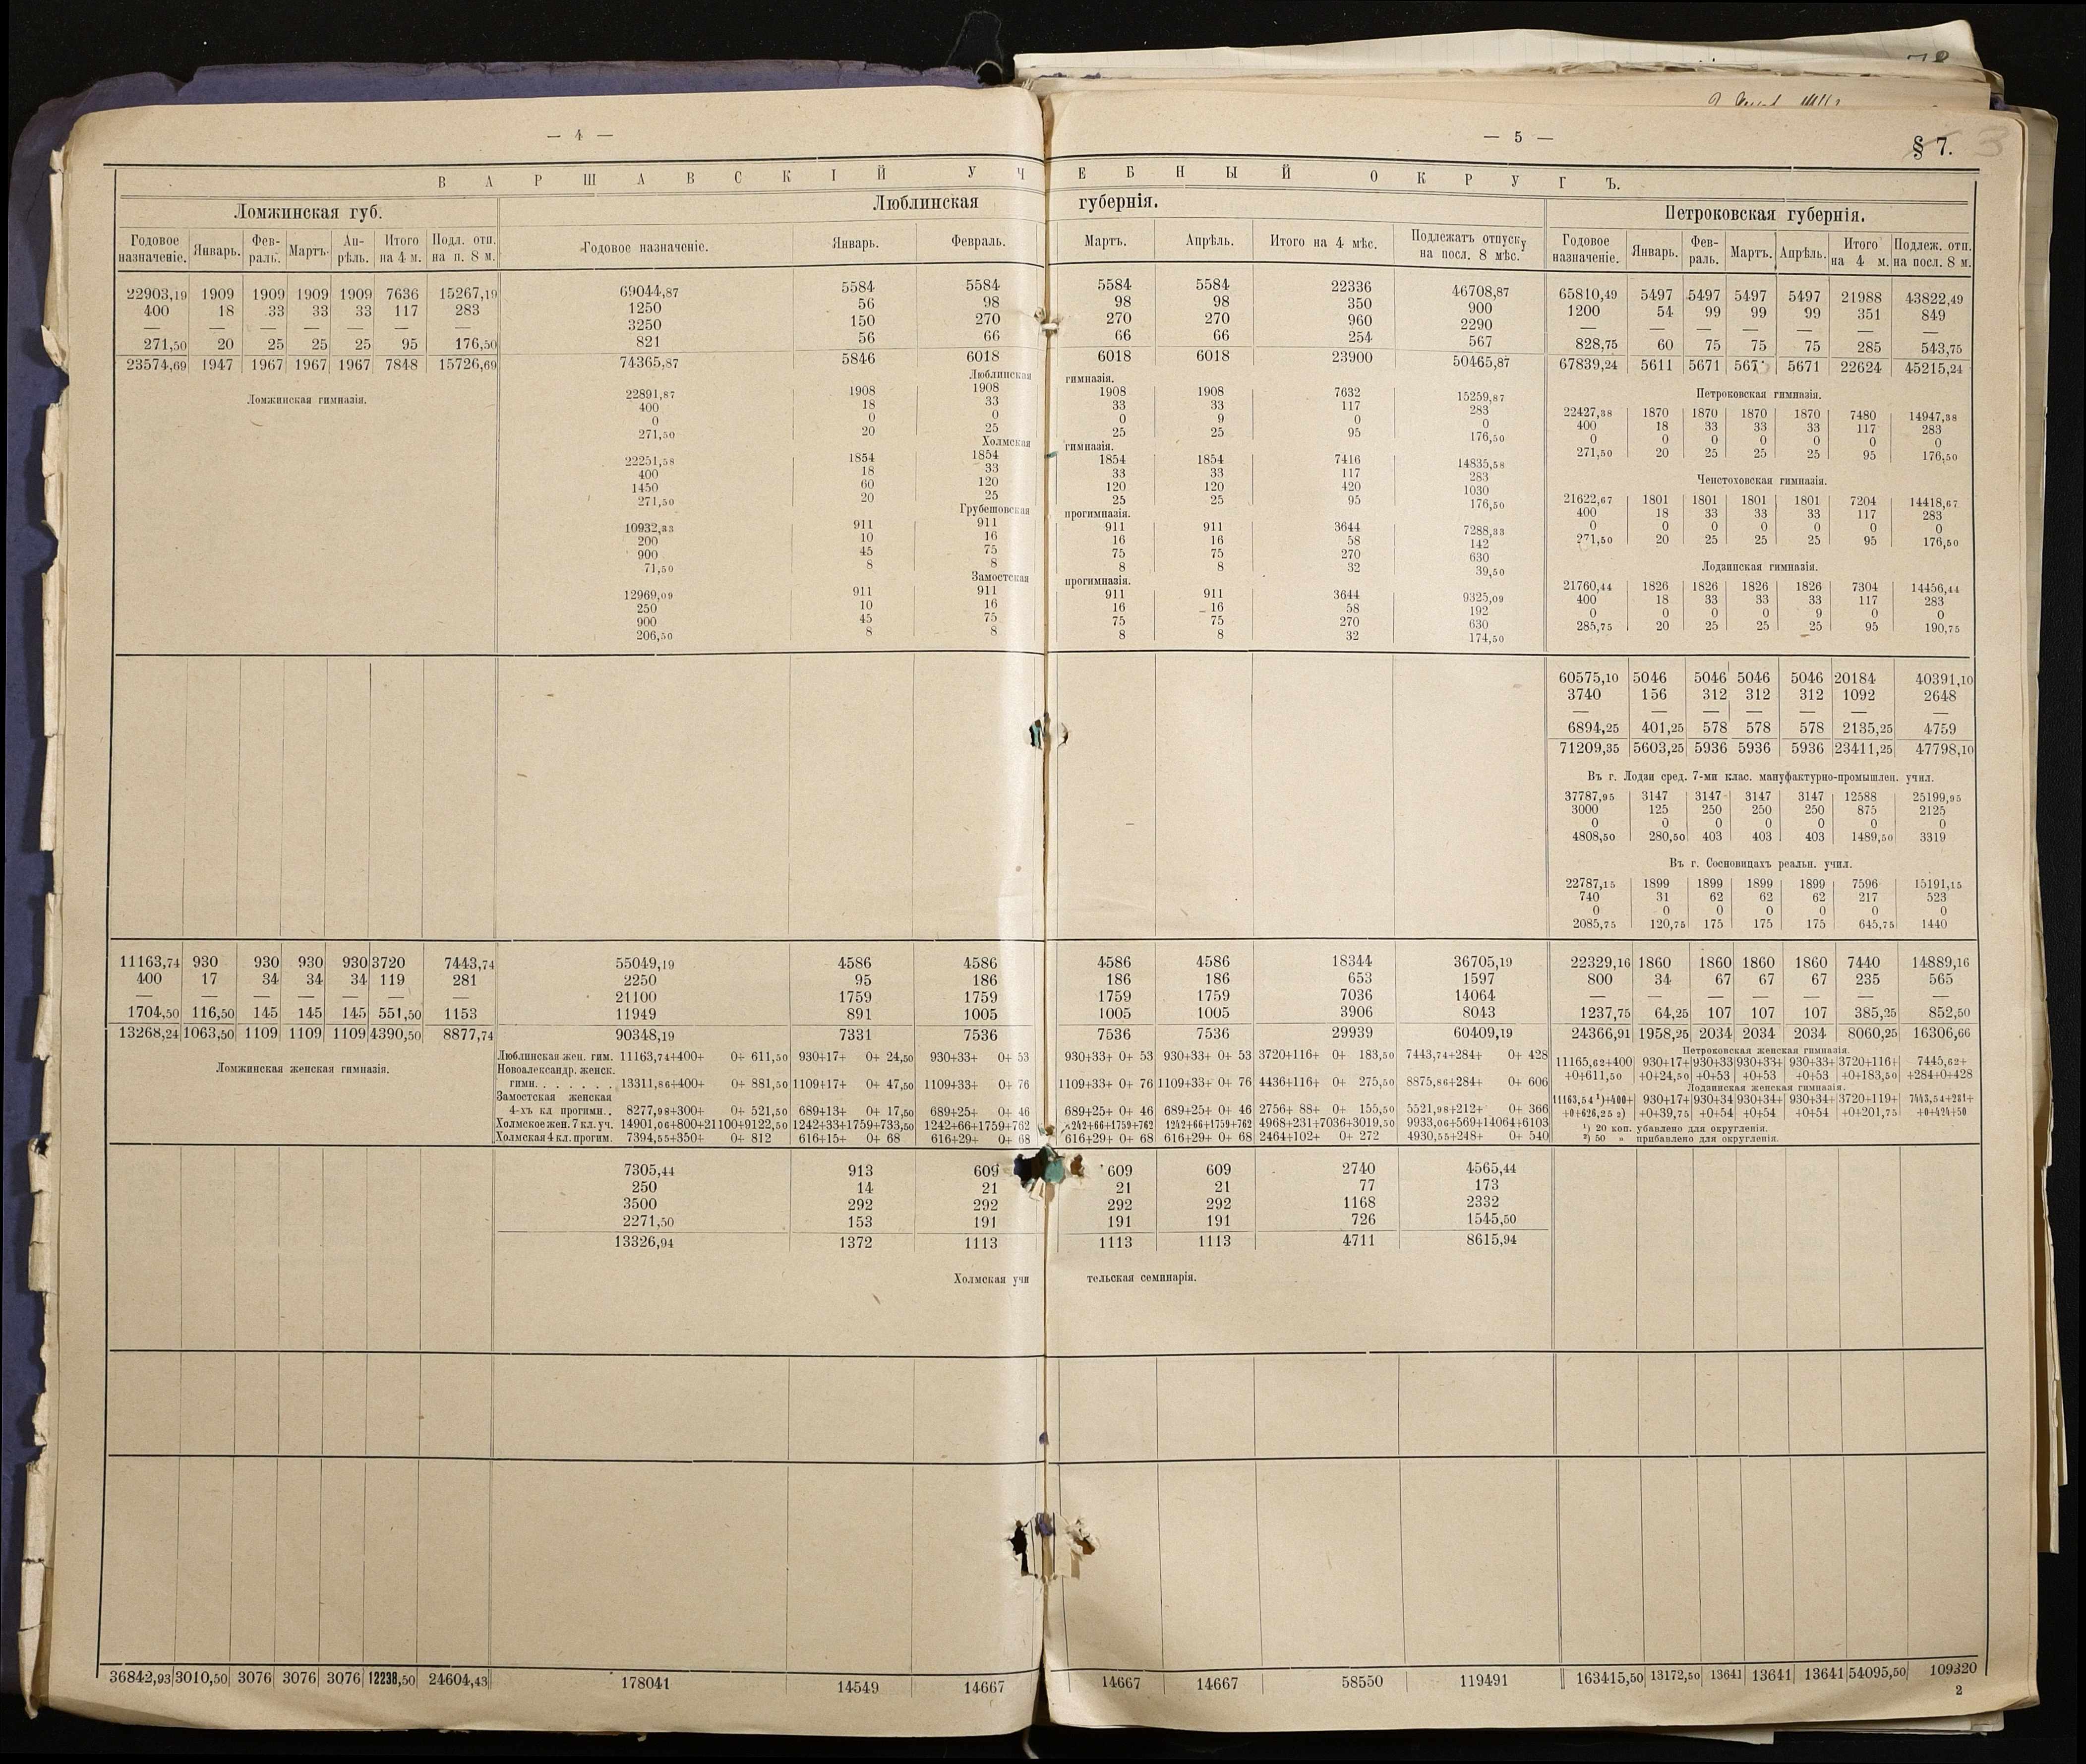 — 4 —
— 5 —
§ 7.
ВАРШАВСКІЙ УЧЕБНЫЙ ОКРУГЪ.
Ломжинская губ. Люблинская губернія. Петроковская губернія.
Годовое назначеніе. Январь. Фев- раль. Мартъ. Ап- рѣль. Итого на 4 м. Подл. отп. на п. 8 м. Годовое назначеніе. Январь. Февраль. Мартъ. Апрѣль. Итого на 4 мѣс. Подлежатъ отпуску на посл. 8 мѣс. Годовое назначеніе. Январь. Фев- раль. Мартъ. Апрѣль. Итого на 4 м. Подлеж. отп. на посл. 8 м.
22903,19 1909 1909 1909 1909 7636 15267,19 69044,87 5584 5584 5584 5584 22336 46708,87 65810,49 5497 5497 5497 5497 21988 43822,49
400 18 33 33 33 117 283 1250 56 98 98 98 350 900 1200 54 99 99 99 351 849
— — — — — — — 3250 150 270 270 270 960 2290 — — — — — — —
271,50 20 25 25 25 95 176,50 821 56 66 66 66 254 567 828,75 60 75 75 75 285 543,75
23574,69 1947 1967 1967 1967 7848 15726,69 74365,87 5846 6018 6018 6018 23900 50465,87 67839,24 5611 5671 567 5671 22624 45215,24
Ломжинская гимназія.
Люблинская гимназія.
22891,87 1908 1908 1908 1908 7632 15259,87
400 18 33 33 33 117 283
0 0 0 0 9 0 0
271,50 20 25 25 25 95 176,50
Холмская гимназія.
22251,58 1854 1854 1854 1854 7416 14835,58
400 18 33 33 33 117 283
1450 60 120 120 120 420 1030
271,50 20 25 25 25 95 176,50
Грубешовская прогимназія.
10932,33 911 911 911 911 3644 7288,33
200 10 16 16 16 58 142
900 45 75 75 75 270 630
71,50 8 8 8 8 32 39,50
Замостская прогимназія.
12969,09 911 911 911 911 3644 9325,09
250 10 16 16 16 58 192
900 45 75 75 75 270 630
206,50 8 8 8 8 32 174,50
Петроковская гимназія.
22427,38 1870 1870 1870 1870 7480 14947,38
400 18 33 33 33 117 283
0 0 0 0 0 0 0
271,50 20 25 25 25 95 176,50
Ченстоховская гимназія.
21622,67 1801 1801 1801 1801 7204 14418,67
400 18 33 33 33 117 283
0 0 0 0 0 0 0
271,50 20 25 25 25 95 176,50
Лодзинская гимназія.
21760,44 1826 1826 1826 1826 7304 14456,44
400 18 33 33 33 117 283
0 0 0 0 9 0 0
285,75 20 25 25 25 95 190,75
60575,10 5046 5046 5046 5046 20184 40391,10
3740 156 312 312 312 1092 2648
— — — — — — —
6894,25 401,25 578 578 578 2135,25 4759
71209,35 5603,25 5936 5936 5936 23411,25 47798,10
Въ г. Лодзи сред. 7-ми клас. мануфактурно-промышлен. учил.
37787,95 3147 3147 3147 3147 12588 25199,95
3000 125 250 250 250 875 2125
0 0 0 0 0 0 0
4808,50 280,50 403 403 403 1489,50 3319
Въ г. Сосновицахъ реальн. учил.
22787,15 1899 1899 1899 1899 7596 15191,15
740 31 62 62 62 217 523
0 0 0 0 0 0 0
2085,75 120,75 175 175 175 645,75 1440
11163,74 930 930 930 930 3720 7443,74 55049,19 4586 4586 4586 4586 18344 36705,19 22329,16 1860 1860 1860 1860 7440 14889,16
400 17 34 34 34 119 281 2250 95 186 186 186 653 1597 800 34 67 67 67 235 565
— — — — — — — 21100 1759 1759 1759 1759 7036 14064 — — — — — — —
1704,50 116,50 145 145 145 551,50 1153 11949 891 1005 1005 1005 3906 8043 1237,75 64,25 107 107 107 385,25 852,50
13268,24 1063,50 1109 1109 1109 4390,50 8877,74 90348,19 7331 7536 7536 7536 29939 60409,19 24366,91 1958,25 2034 2034 2034 8060,25 16306,66
Ломжинская женская гимназія.
Люблинская жен. гим. 11163,74+400+ 0+ 611,50 930+17+ 0+ 24,50 930+33+ 0+ 53 930+33+ 0+ 53 930+33+ 0+ 53 3720+116+ 0+ 183,50 7443,74+284+ 0+ 428
Новоалександр. женск.
гимн. . . . . . . 13311,86+400+ 0+ 881,50 1109+17+ 0+ 47,50 1109+33+ 0+ 76 1109+33+ 0+ 76 1109+33+ 0+ 76 4436+116+ 0+ 275,50 8875,86+284+ 0+ 606
Замостская женская
4-хъ кл прогимн. . 8277,98+300+ 0+ 521,50 689+13+ 0+ 17,50 689+25+ 0+ 46 689+25+ 0+ 46 689+25+ 0+ 46 2756+ 88+ 0+ 155,50 5521,98+212+ 0+ 366
Холмское жен. 7 кл. уч. 14901,06+800+21100+9122,50 1242+33+1759+733,50 1242+66+1759+762 1242+66+1759+762 1242+66+1759+762 4968+231+7036+3019,50 9933,06+569+14064+6103
Холмская 4 кл. прогим. 7394,55+350+ 0+ 812 616+15+ 0+ 68 616+29+ 0+ 68 616+29+ 0+ 68 616+29+ 0+ 68 2464+102+ 0+ 272 4930,55+248+ 0+ 540
Петроковская женская гимназія.
11165,62+400 930+17+ 930+33 930+33+ 930+33+ 3720+116+ 7445,62+
+0+611,50 +0+24,50 +0+53 +0+53 +0+53 +0+183,50 +284+0+428
Лодзинская женская гимназія.
11163,54 ¹)+400+ 930+17+ 930+34 930+34+ 930+34+ 3720+119+ 7443,54+281+
+0+626,25 ²) +0+39,75 +0+54 +0+54 +0+54 +0+201,75 +0+424+50
¹) 20 коп. убавлено для округленія.
²) 50 „ прибавлено для округленія.
7305,44 913 609 609 609 2740 4565,44
250 14 21 21 21 77 173
3500 292 292 292 292 1168 2332
2271,50 153 191 191 191 726 1545,50
13326,94 1372 1113 1113 1113 4711 8615,94
Холмская учительская семинарія.
36842,93 3010,50 3076 3076 3076 12238,50 24604,43 178041 14549 14667 14667 14667 58550 119491 163415,50 13172,50 13641 13641 13641 54095,50 109320
2